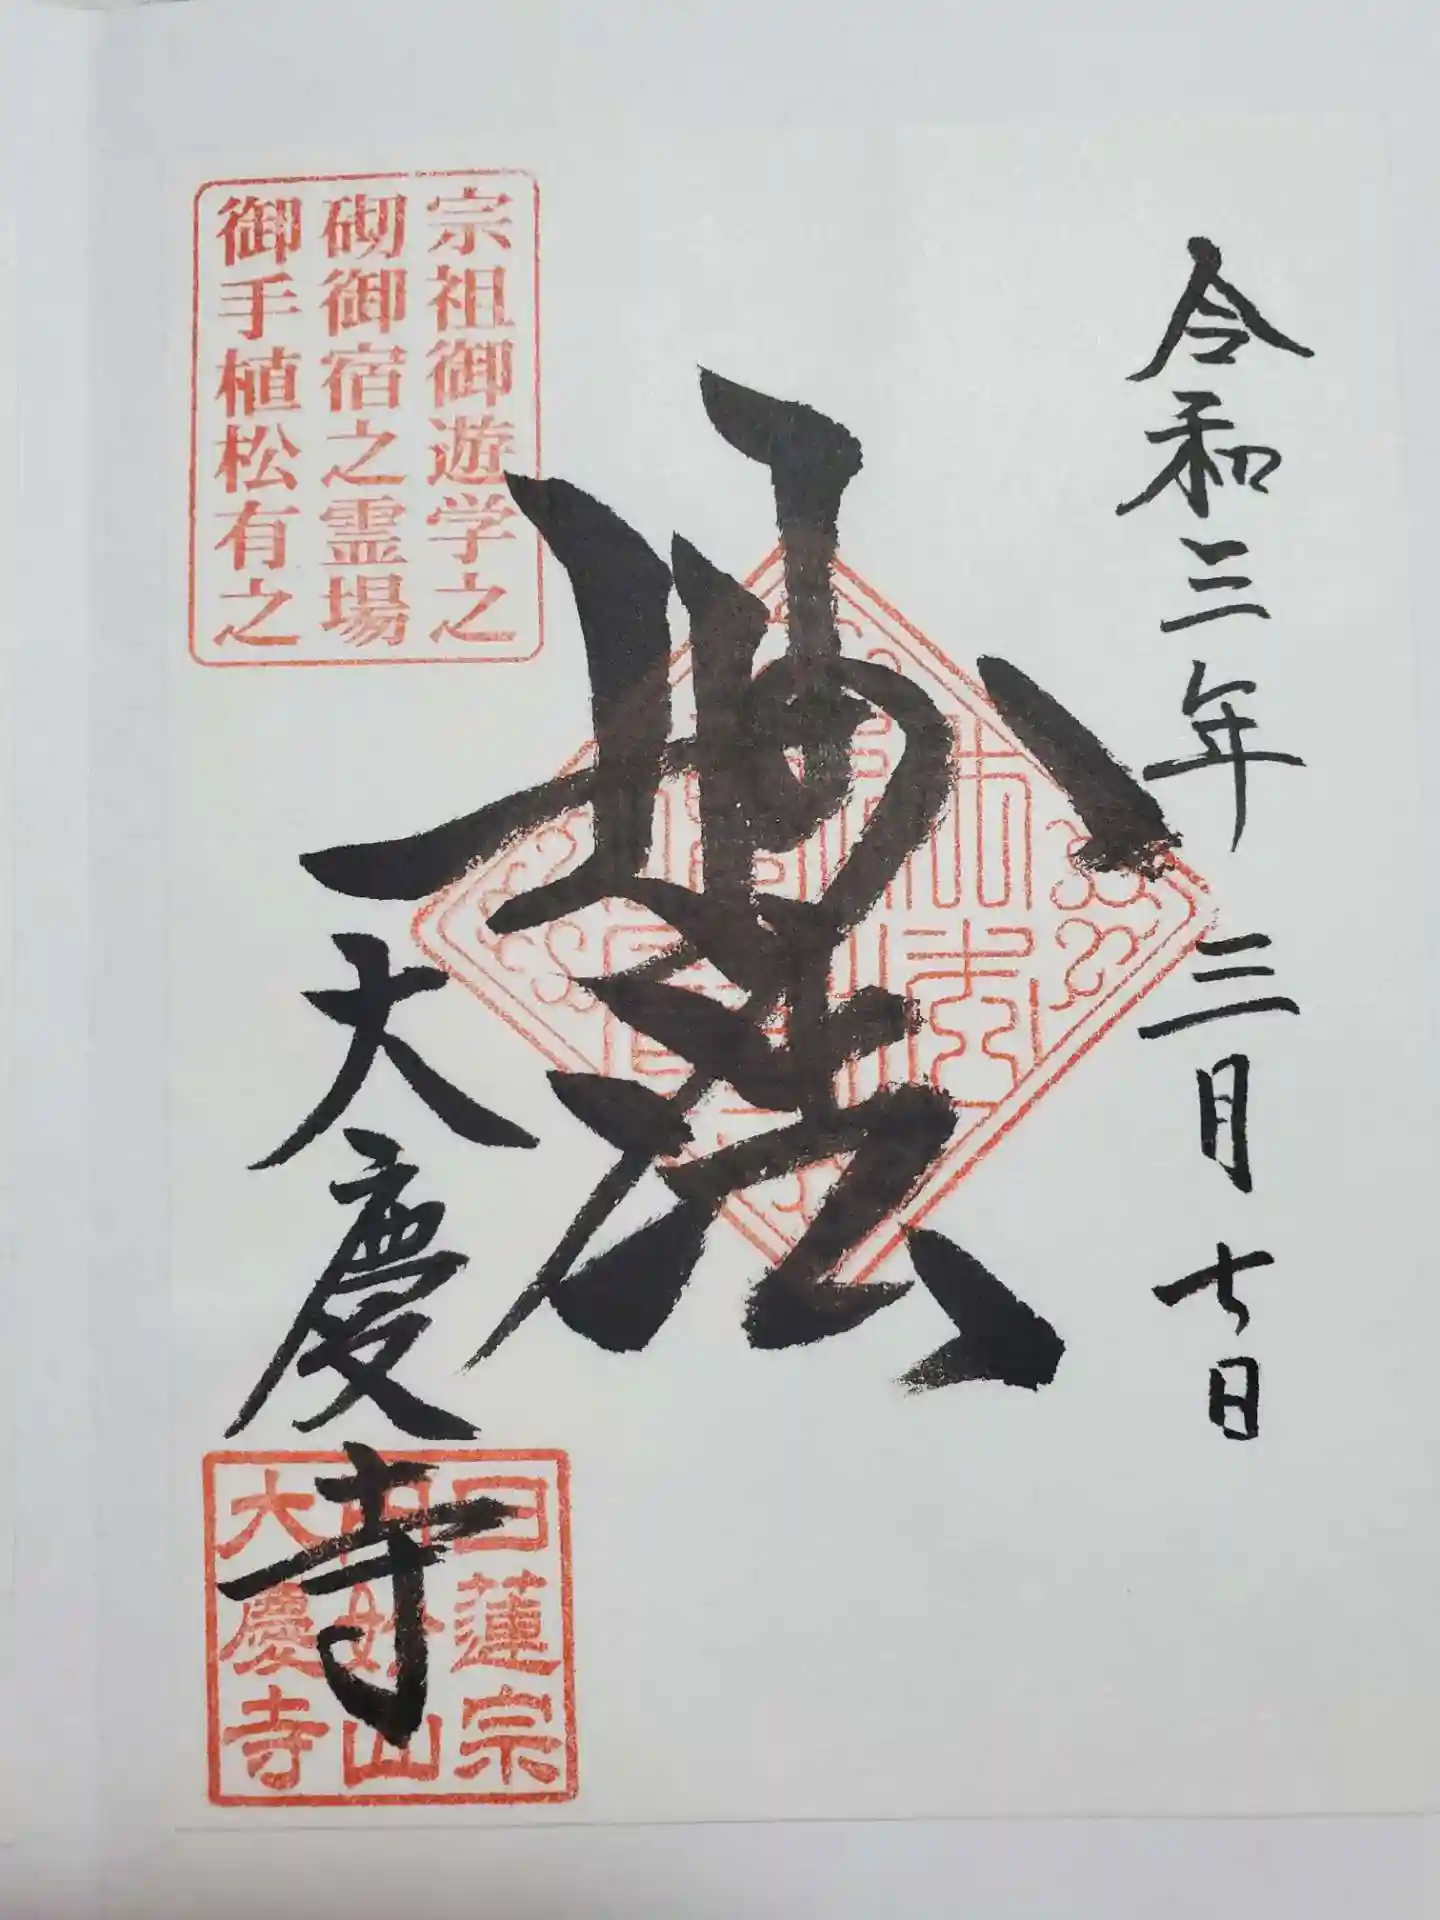 令和三年 三月七日
妙法
宗祖御遊学之
砌御宿之霊場
御手植松有之
大慶寺
日蓮宗
円妙山
大慶寺